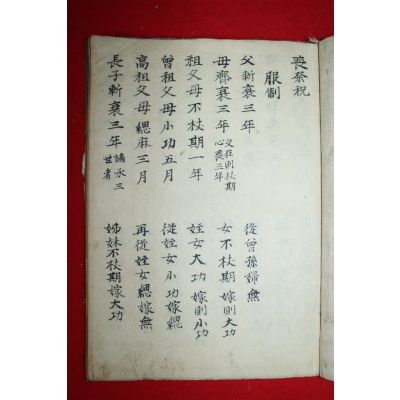 喪祭祝
服制
父斬衰三年
母齊衰三年
父在則杖期
心喪三年
祖父母不杖期一年
曾祖父母小功五月
高祖父母緦麻三月
長子斬衰三年
承三
世者
從曾孫婦無
女不杖期嫁則大功
姪女大功嫁則小功
從姪女小功嫁緦
再從姪女緦嫁無
姊妹不杖期嫁大功